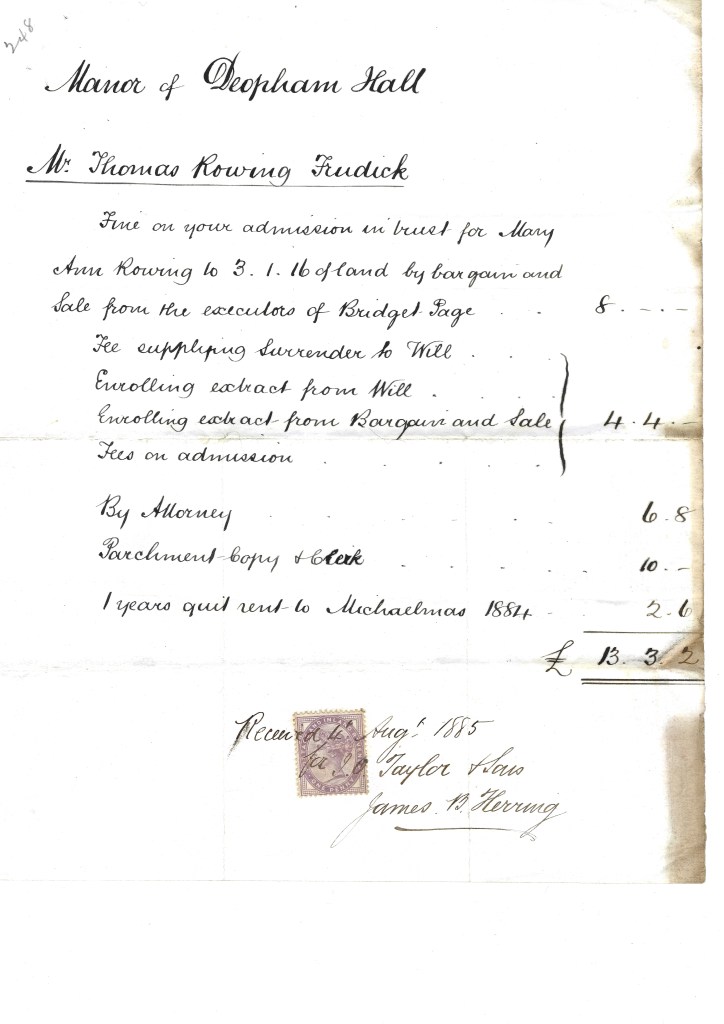 248
Manor of Deopham Hall
Mr. Thomas Rowing Frudick
Fine on your admission in trust for Mary
Ann Rowing to 3. 1. 16 of land by bargain and
Sale from the executors of Bridget Page . . 8 . - . -
Fee supplying Surrender to Will . . .
Enrolling extract from Will . . .
Enrolling extract from Bargain and Sale 4. 4. -
Fees on admission . . . .
By Attorney . . . . 6. 8
Parchment Copy & Clerk . . . . 10. -
1 years quit rent to Michaelmas 1884 - - 2. 6
£ 13. 3. 2
Received 4 Augt 1885
for Taylor & Sons
James. B. Herring